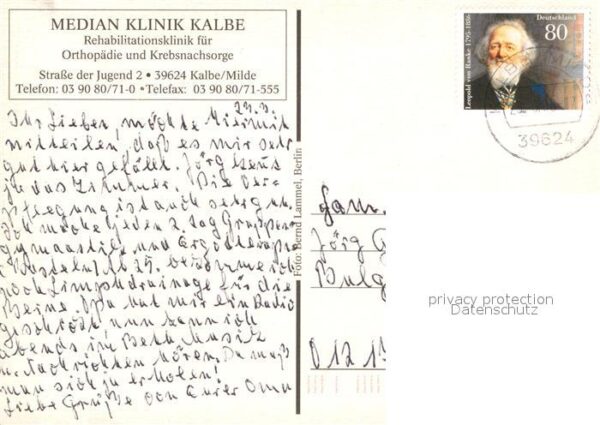 MEDIAN KLINIK KALBE
Rehabilitationsklinik für
Orthopädie und Krebsnachsorge
Straße der Jugend 2 • 39624 Kalbe/Milde
Telefon: 03 90 80/71-0 • Telefax: 03 90 80/71-555
Ihr Lieben, möchte Hiermit
mitteilen, daß es mir sehr
gut hier gefällt. Jörg kennt
ja das Zimmer. Die Ver-
pflegung ist auch sehr gut.
Ich mache jeden 2. Tag Gruppen
gymnastik und Ergotherapie
Basteln. Ab 25. bekomme ich
noch Limphdrainage für die
Beine. Opa hat mir ein Radio
geschickt, nun kann ich
abends im Bett Musik
u. Nachrichten hören. Da muß
man sich ja erholen!
Liebe Grüße von Eurer Oma
Foto: Bernd Lammel, Berlin
Deutschland
80
Leopold von Ranke 1795-1886
39624
Fam.
Jörg G
Bulg
privacy protection
Datenschutz